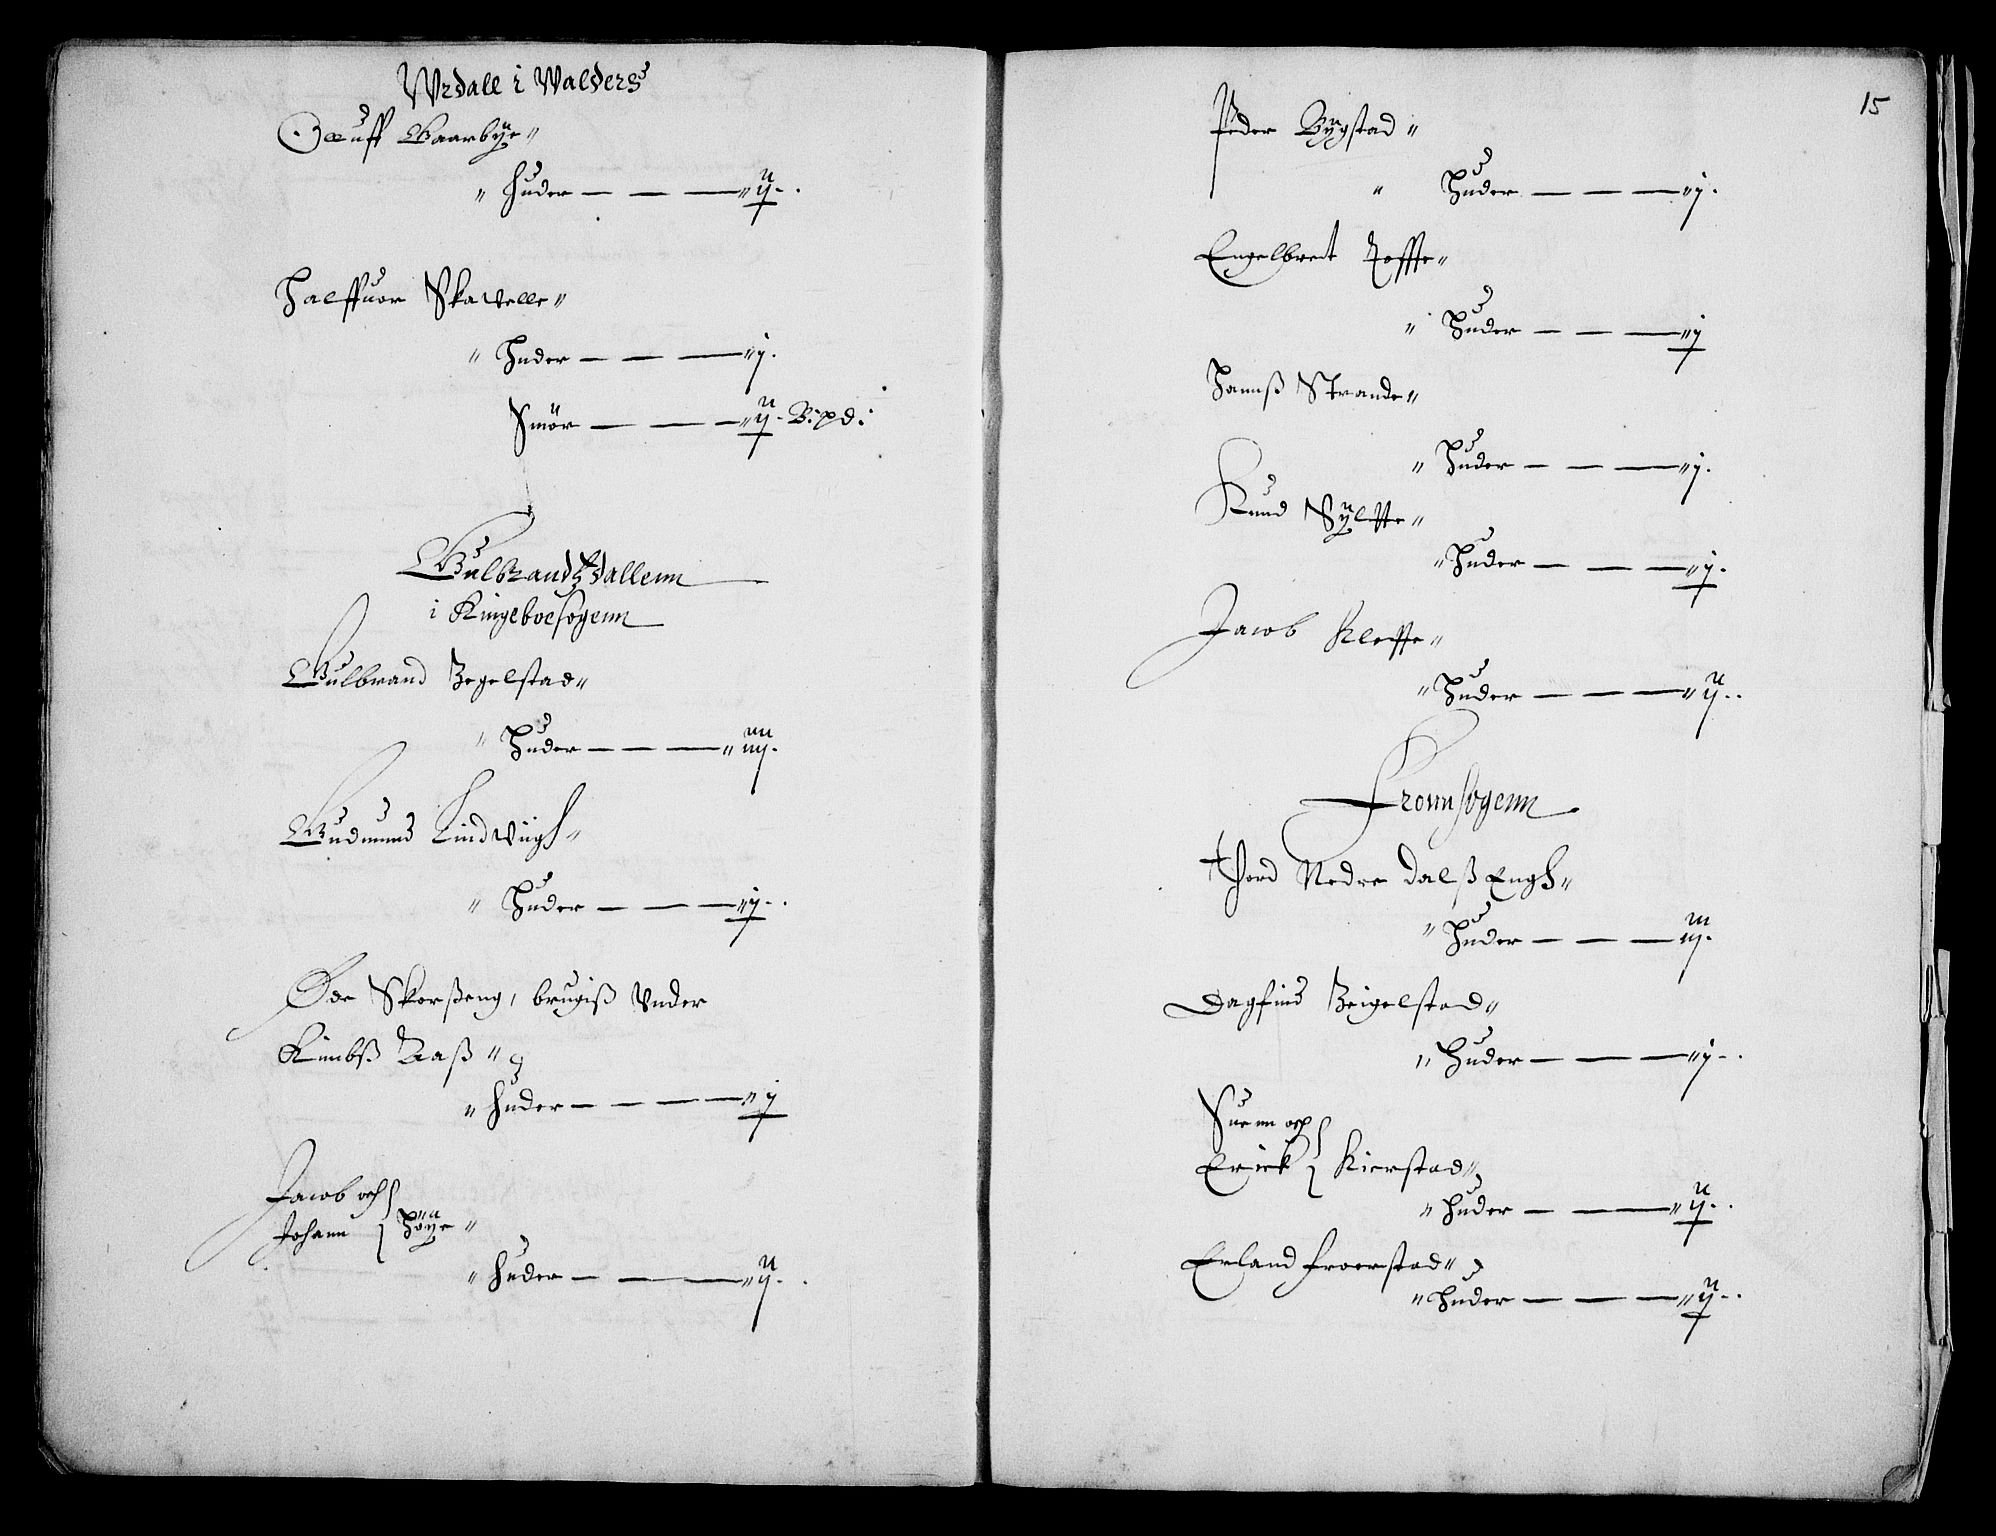 Wrdall i Walders
Oluff Gaarbÿe"
" Huder — — — " ij - .
Halffuor Skattelle"
" Huder — — — " j .
Smör — — — " ij - B: pd:
Gulbrandzdallenn
i Ringeboesogenn
Gulbrand Zegelstad"
" Huder — — — " iiij .
Gudmund Lindviigh"
" Huder — — — " j - .
Øde Skorßeng, brugiß Vnder
Kimbß Aaß "
" Huder — — — " j
Jacob och
Johann Höÿe "
" Huder — — — " ij - .
15
Peder Bÿgstad "
" Huder — — — " j .
Engelbret Toffte"
" Huder — — — " j
Hannß Strande"
" Huder — — — " j .
Knud Sÿlltte"
" Huder — — — " j .
Jacob Kleffte"
" Huder — — — " ij - .
Fronnsogenn
Thord Nedre Dalß Engh"
" Huder — — — iij .
Dagfind Zeigelstad"
" Huder — — — " j - .
Suenn och
Erick Kierstad"
" Huder — — — " ij - .
Erland Froerstad"
" Huder — — — " ij - .